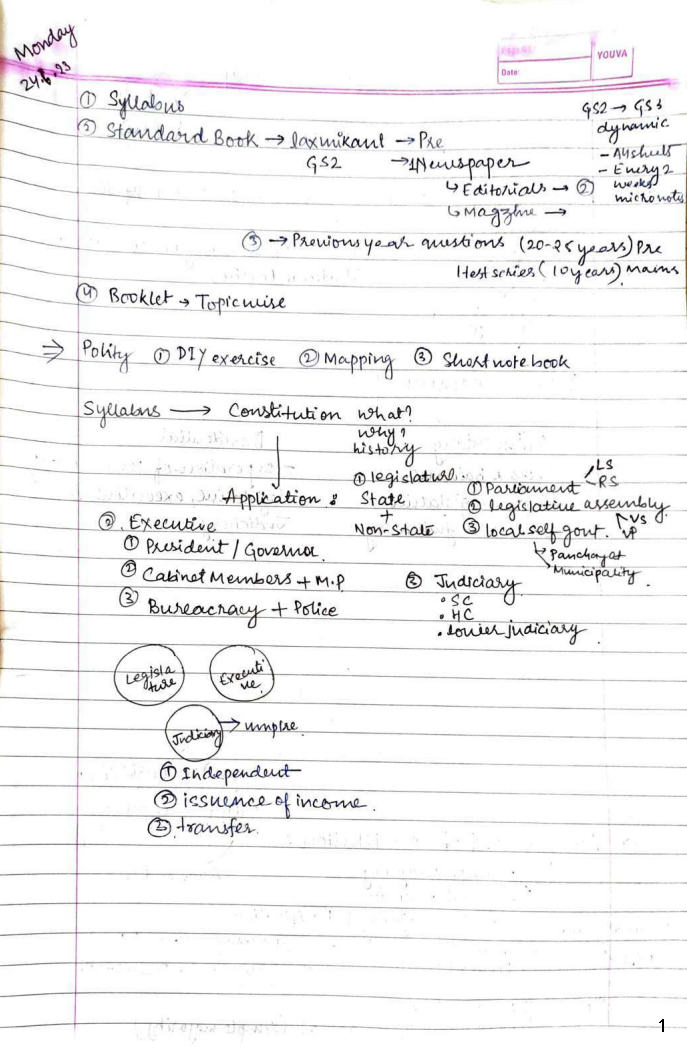 Monday
24.6.23
YOUVA
Date:
① Syllabus
GS2 → GS3
dynamic
③ Standard Book → laxmikant → Pre
GS2 → 1Newspaper
- Every 2
weeks
micronotes
↳ Editorials → ②
↳ Magzine →
③ → Previous year questions (20-25 years) Pre
1test series (10 years) Mains
④ Booklet → Topicwise
⇒ Polity ① DIY exercise ② Mapping ③ Short notebook
Syllabus → Constitution what?
why?
history
Application :
① legislature
State
+
Non-State
① Parliament LS
RS
② legislative assembly
③ local self govt. VS
VP
↳ Panchayat
Municipality.
②. Executive
① President / Governor.
② Cabinet Members + M.P
③ Bureacracy + Police
② Judiciary
• SC
• HC
• lower judiciary
Legisla
ture
Executi
ve.
Judiciary → umpire.
① Independent
② issuence of income.
③ transfer.
1